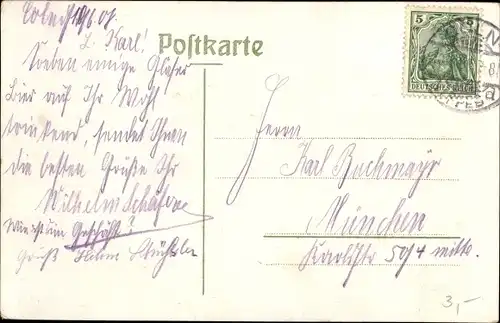 Postkarte
L. Karl!
Soeben einige Gläser
Bier auf Ihr Wohl
trinkend, sendet Ihnen
die besten Grüße Ihr
Wilhelm Schäfer
Geschäft?
Gruß
5
5
DEUTSCHES REICH
Herrn
Karl Buchmayr
München
Karlstr 50/4 mitte.
3,-